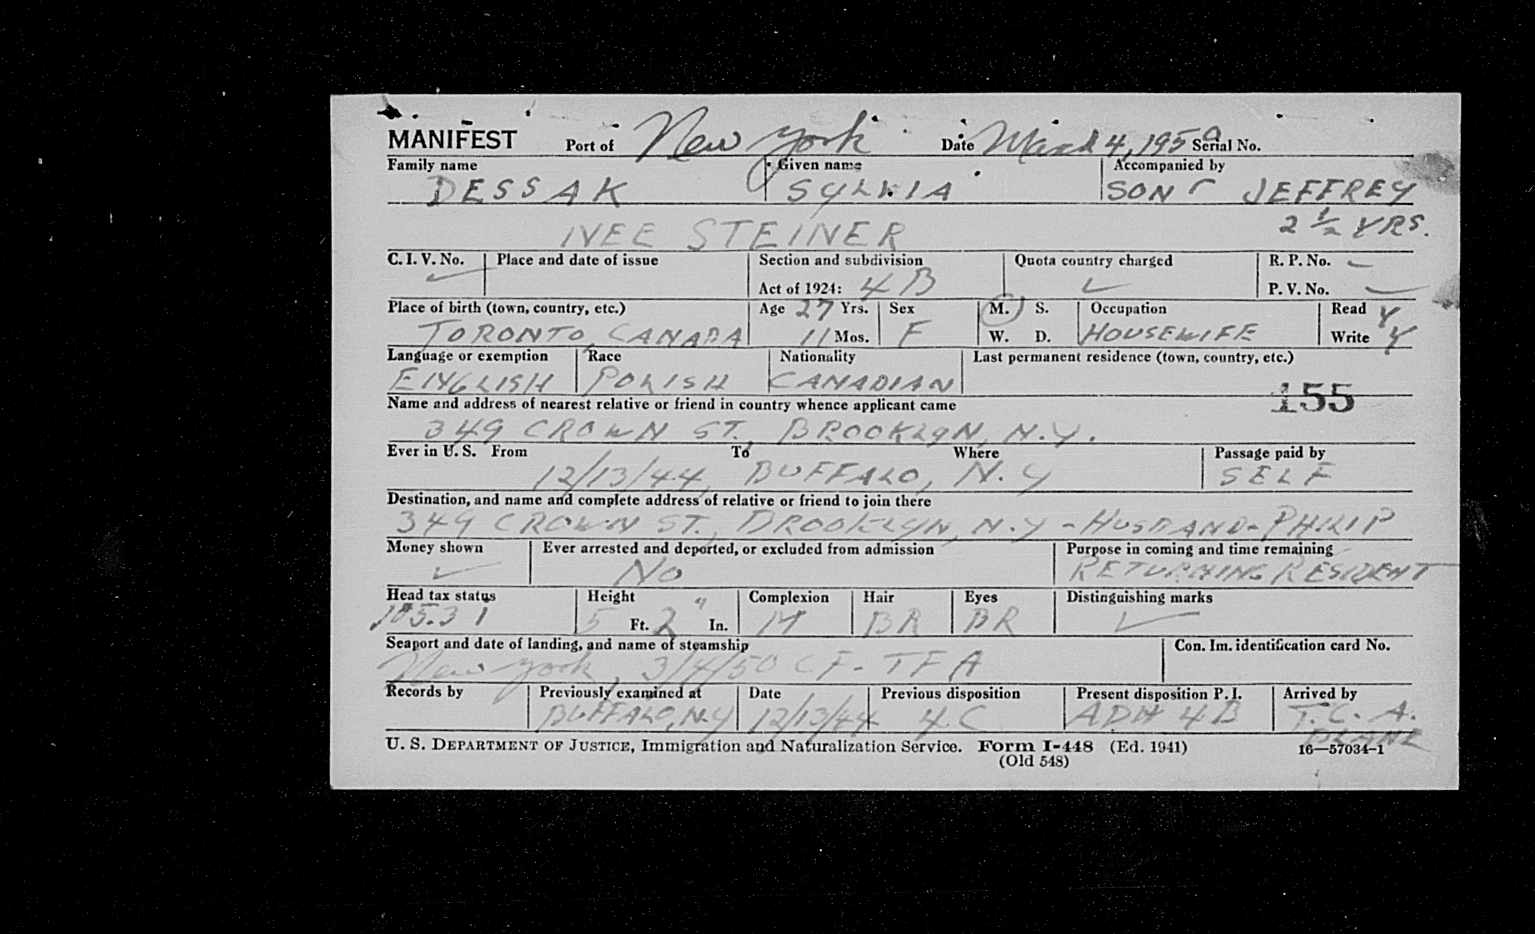 MANIFEST Port of New York Date March 4, 1950 Serial No.
Family name Given name Accompanied by
DESSAK SYLVIA SON - JEFFREY
NEE STEINER 2 1/2 YRS.
C. I. V. No. Place and date of issue Section and subdivision Quota country charged R. P. No. —
✓ Act of 1924: 4 B ✓ P. V. No. —
Place of birth (town, country, etc.) Age 27 Yrs. Sex M. S. Occupation Read Y
TORONTO, CANADA 11 Mos. F W. D. HOUSEWIFE Write Y
Language or exemption Race Nationality Last permanent residence (town, country, etc.)
ENGLISH POLISH CANADIAN 155
Name and address of nearest relative or friend in country whence applicant came
349 CROWN ST., BROOKLYN, N.Y.
Ever in U. S. From To Where Passage paid by
12/13/44, BUFFALO, N.Y SELF
Destination, and name and complete address of relative or friend to join there
349 CROWN ST., BROOKLYN, N.Y - HUSBAND - PHILIP
Money shown Ever arrested and deported, or excluded from admission Purpose in coming and time remaining
✓ NO RETURNING RESIDENT
Head tax status Height Complexion Hair Eyes Distinguishing marks
105.31 5 Ft. 2 " In. M BR BR ✓
Seaport and date of landing, and name of steamship Con. Im. identification card No.
New York, 3/4/50 CF-TFA
Records by Previously examined at Date Previous disposition Present disposition P. I. Arrived by
BUFFALO, N.Y 12/13/44 4 C ADM 4B T. C. A.
PLANE
U. S. DEPARTMENT OF JUSTICE, Immigration and Naturalization Service. Form I-448 (Ed. 1941) 16—57034-1
(Old 548)